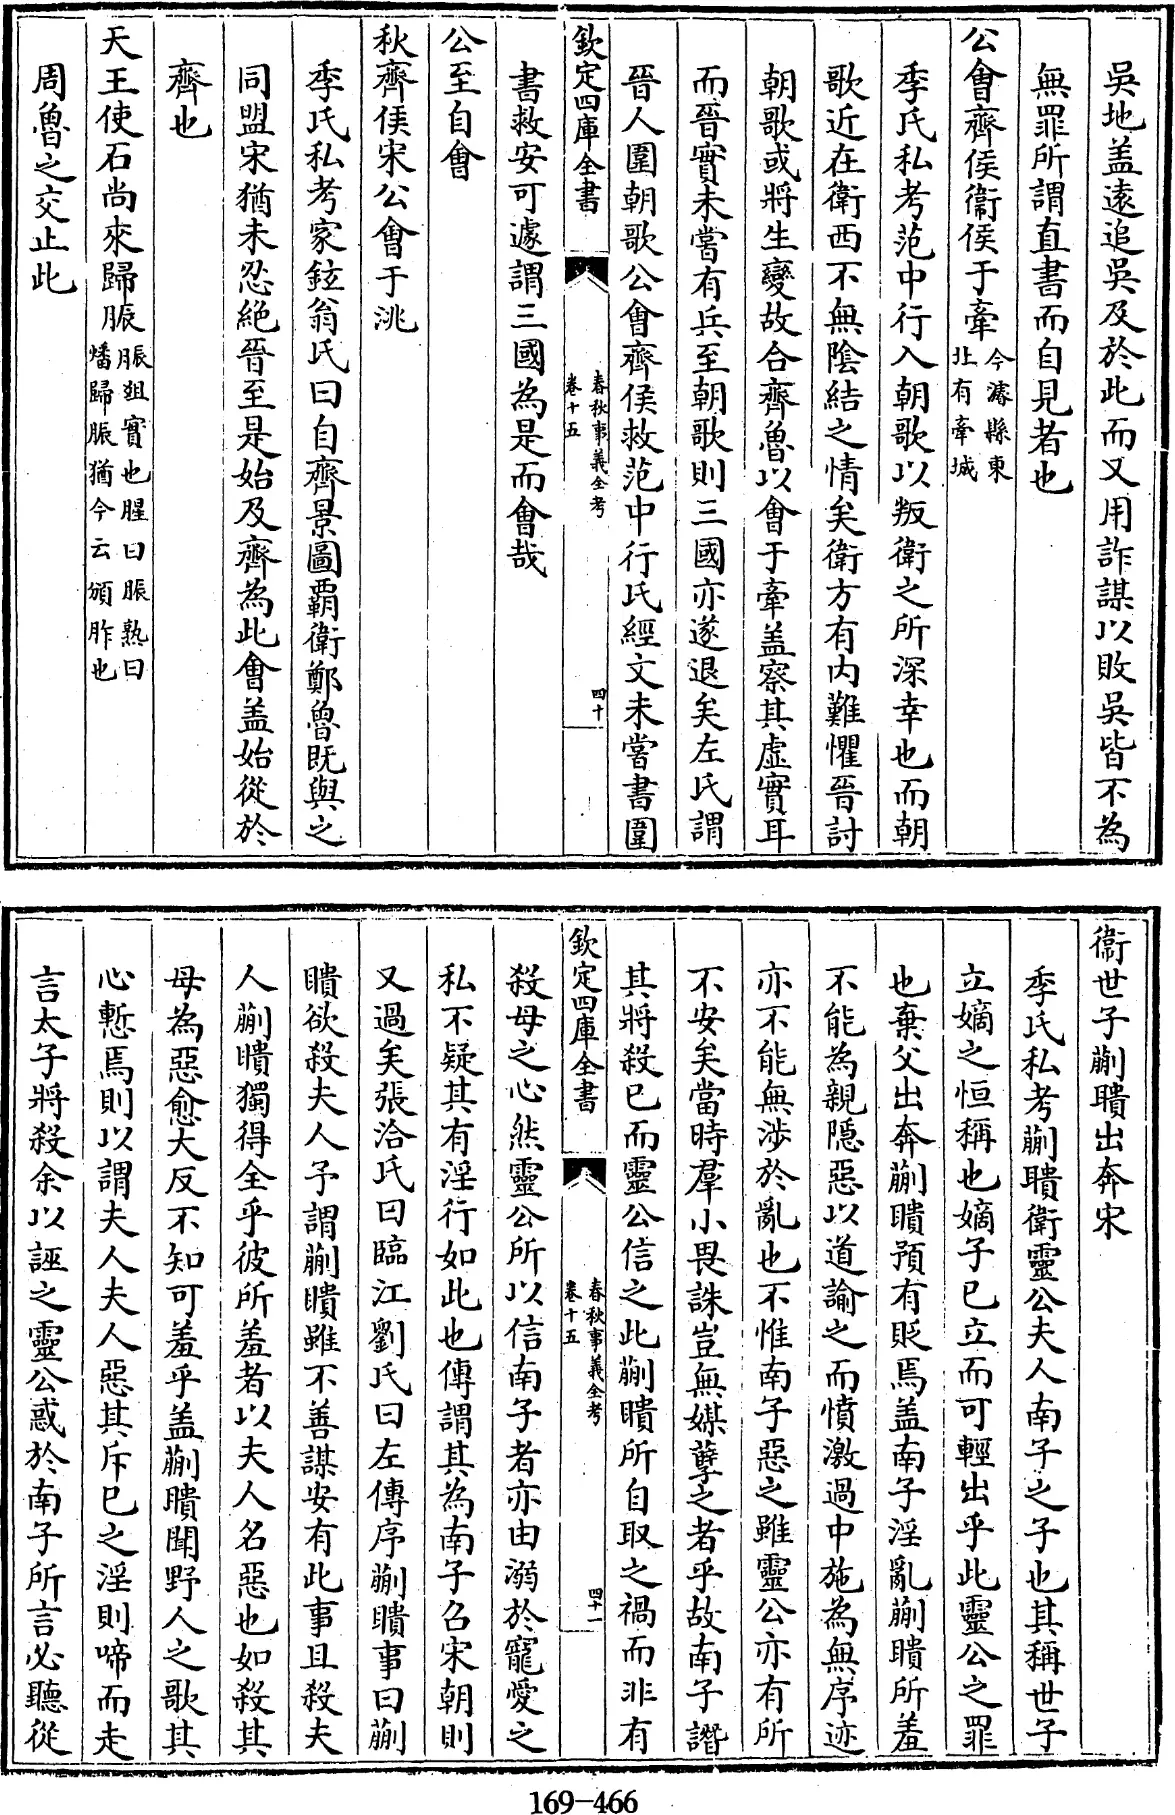 吳地蓋遠追吳及於此而又用詐謀以敗吳皆不為
無罪所謂直書而自見者也
公會齊侯衞侯于牽今濬縣東北有牽城
季氏私考范中行入朝歌以叛衛之所深幸也而朝
歌近在衛西不無陰結之情矣衛方有内難懼晉討
朝歌或將生變故合齊魯以會于牽蓋察其虛實耳
而晉實未嘗有兵至朝歌則三國亦遂退矣左氏謂
晉人圍朝歌公會齊侯救范中行氏經文未嘗書圍
欽定四庫全書
春秋事義全考
卷十五
四十
書救安可遽謂三國為是而會哉
公至自會
秋齊侯宋公會于洮
季氏私考家鉉翁氏曰自齊景圖覇衛鄭魯既與之
同盟宋猶未忍絶晉至是始及齊為此會蓋始從於
齊也
天王使石尚來歸脤脤俎實也腥曰脤熟曰燔歸脤猶今云頒胙也
周魯之交止此
衞世子蒯聵出奔宋
季氏私考蒯聵衛靈公夫人南子之子也其稱世子
立嫡之恒稱也嫡子已立而可輕出乎此靈公之罪
也棄父出奔蒯聵預有貶焉蓋南子淫亂蒯聵所羞
不能為親隠惡以道諭之而憤激過中施為無序迹
亦不能無涉於亂也不惟南子惡之雖靈公亦有所
不安矣當時羣小畏誅豈無媒孽之者乎故南子譖
其將殺已而靈公信之此蒯聵所自取之禍而非有
欽定四庫全書
春秋事義全考
卷十五
四十一
殺母之心然靈公所以信南子者亦由溺於寵愛之
私不疑其有淫行如此也傳謂其為南子召宋朝則
又過矣張洽氏曰臨江劉氏曰左傳序蒯聵事曰蒯
聵欲殺夫人予謂蒯聵雖不善謀安有此事且殺夫
人蒯聵獨得全乎彼所羞者以夫人名惡也如殺其
母為惡愈大反不知可羞乎蓋蒯聵聞野人之歌其
心慙焉則以謂夫人夫人惡其斥已之淫則啼而走
言太子將殺余以誣之靈公惑於南子所言必聽從
169-466